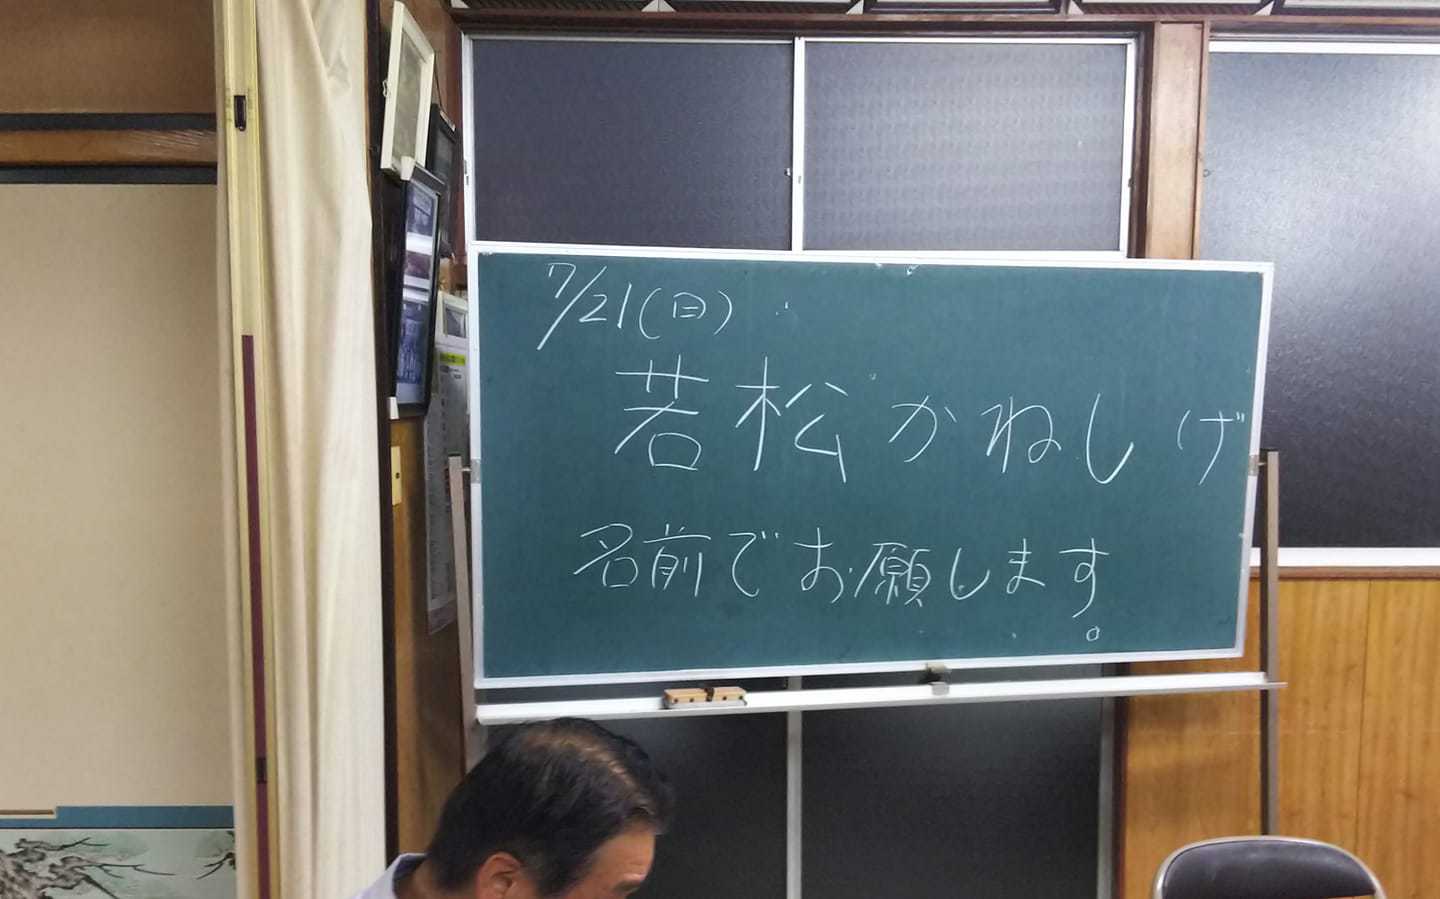 7/21(日)
若松かねしげ
名前でお願いします。